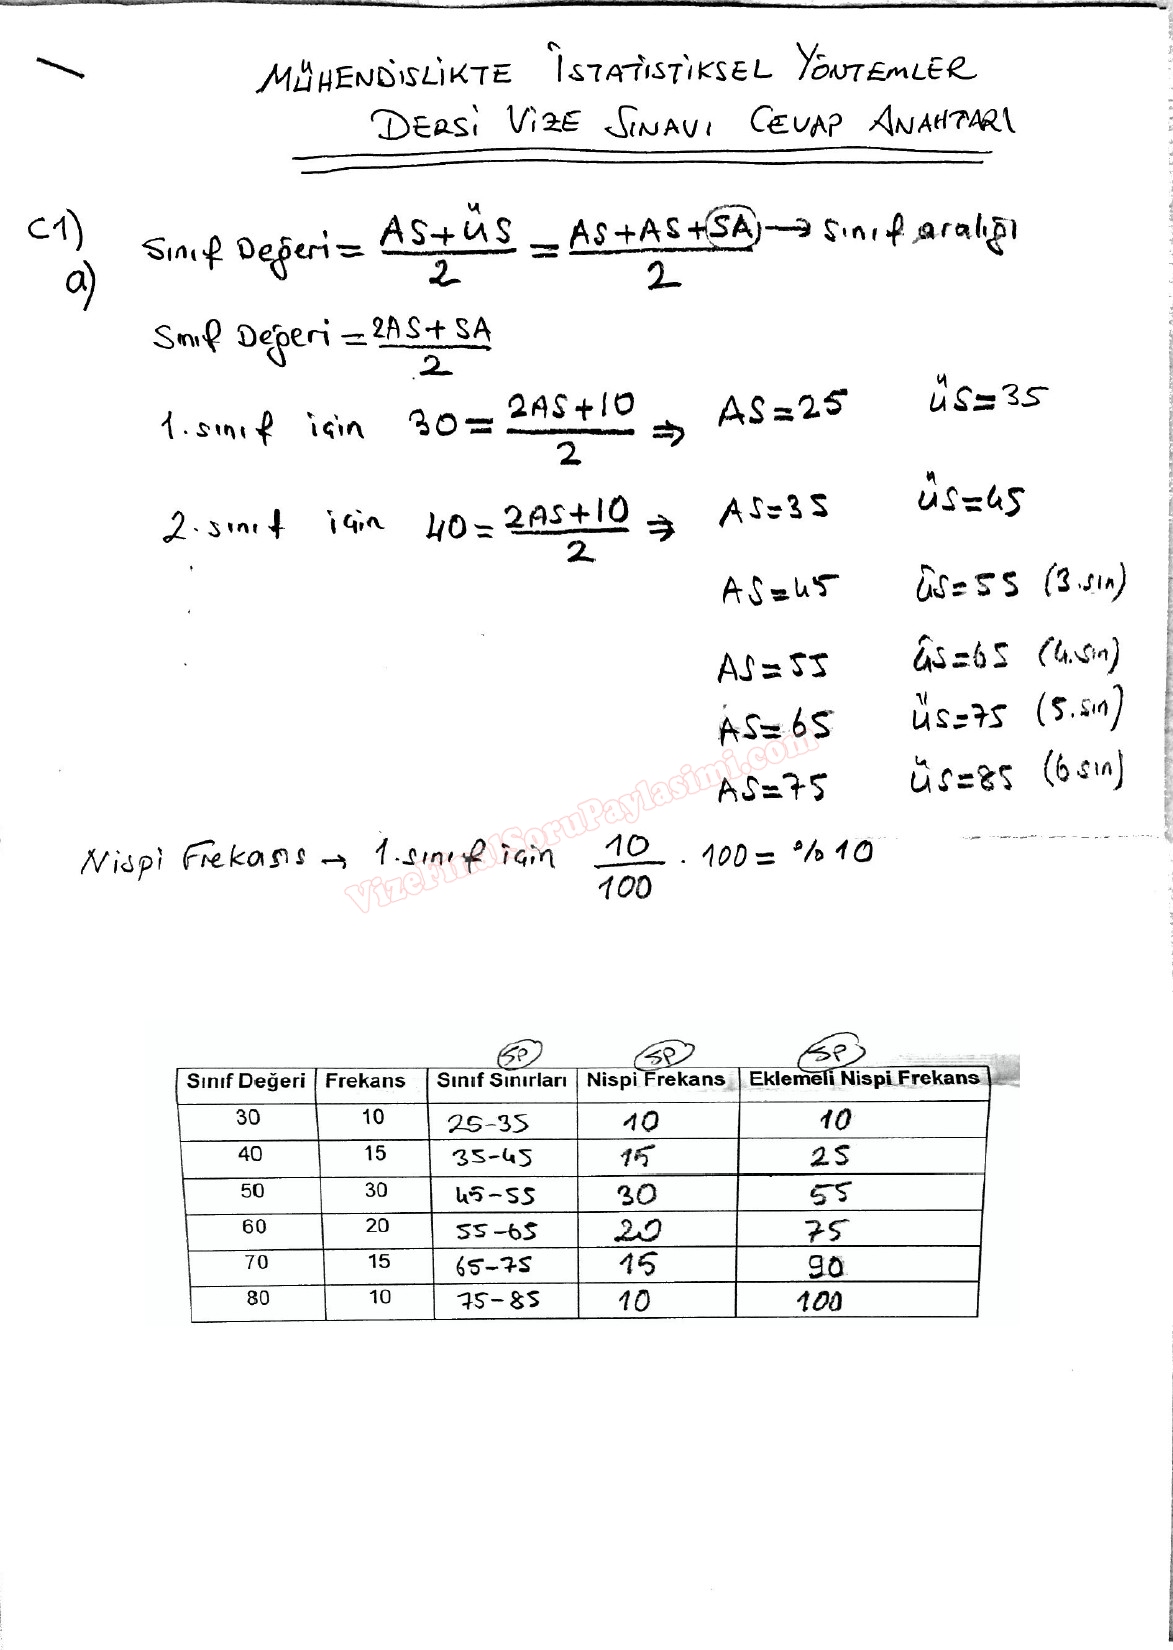 MÜHENDİSLİKTE İSTATİSTİKSEL YÖNTEMLER
DERSİ VİZE SINAVI CEVAP ANAHTARI
C1)
a)
Sınıf Değeri = (AS+ÜS)/2 = (AS+AS+SA)/2 → sınıf aralığı
Sınıf Değeri = (2AS+SA)/2
1. sınıf için 30 = (2AS+10)/2 ⇒ AS=25 ÜS=35
2. sınıf için 40 = (2AS+10)/2 ⇒ AS=35 ÜS=45
AS=45 ÜS=55 (3.sın)
AS=55 ÜS=65 (4.sın)
AS=65 ÜS=75 (5.sın)
AS=75 ÜS=85 (6 sın)
VizeFinalSoruPaylasimi.com
Nispi Frekans → 1. sınıf için 10/100 . 100 = %10
5P 5P 5P
Sınıf Değeri Frekans Sınıf Sınırları Nispi Frekans Eklemeli Nispi Frekans
30 10 25-35 10 10
40 15 35-45 15 25
50 30 45-55 30 55
60 20 55-65 20 75
70 15 65-75 15 90
80 10 75-85 10 100